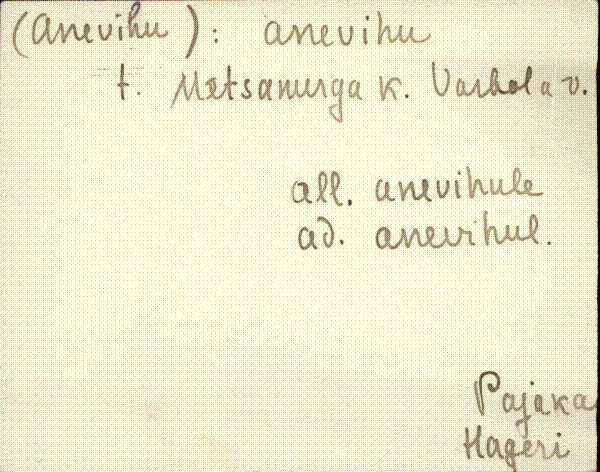 (Anevihu): anevihu
t. Metsanurga k. Varbola v.
all. anevihule
ad. anevihul.
Pajaka
Hageri